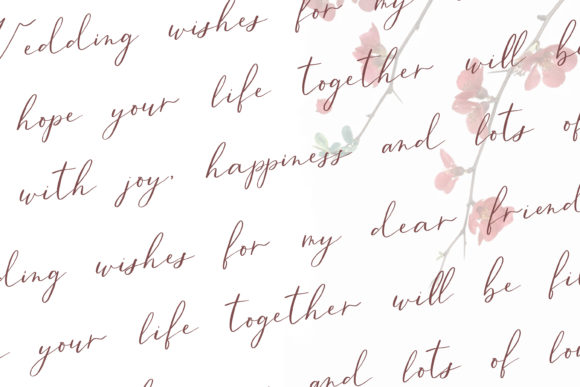 Wedding wishes for my
hope your life together will be
with joy, happiness and lots of
ding wishes for my dear friend
your life together will be fi
and lots of lo